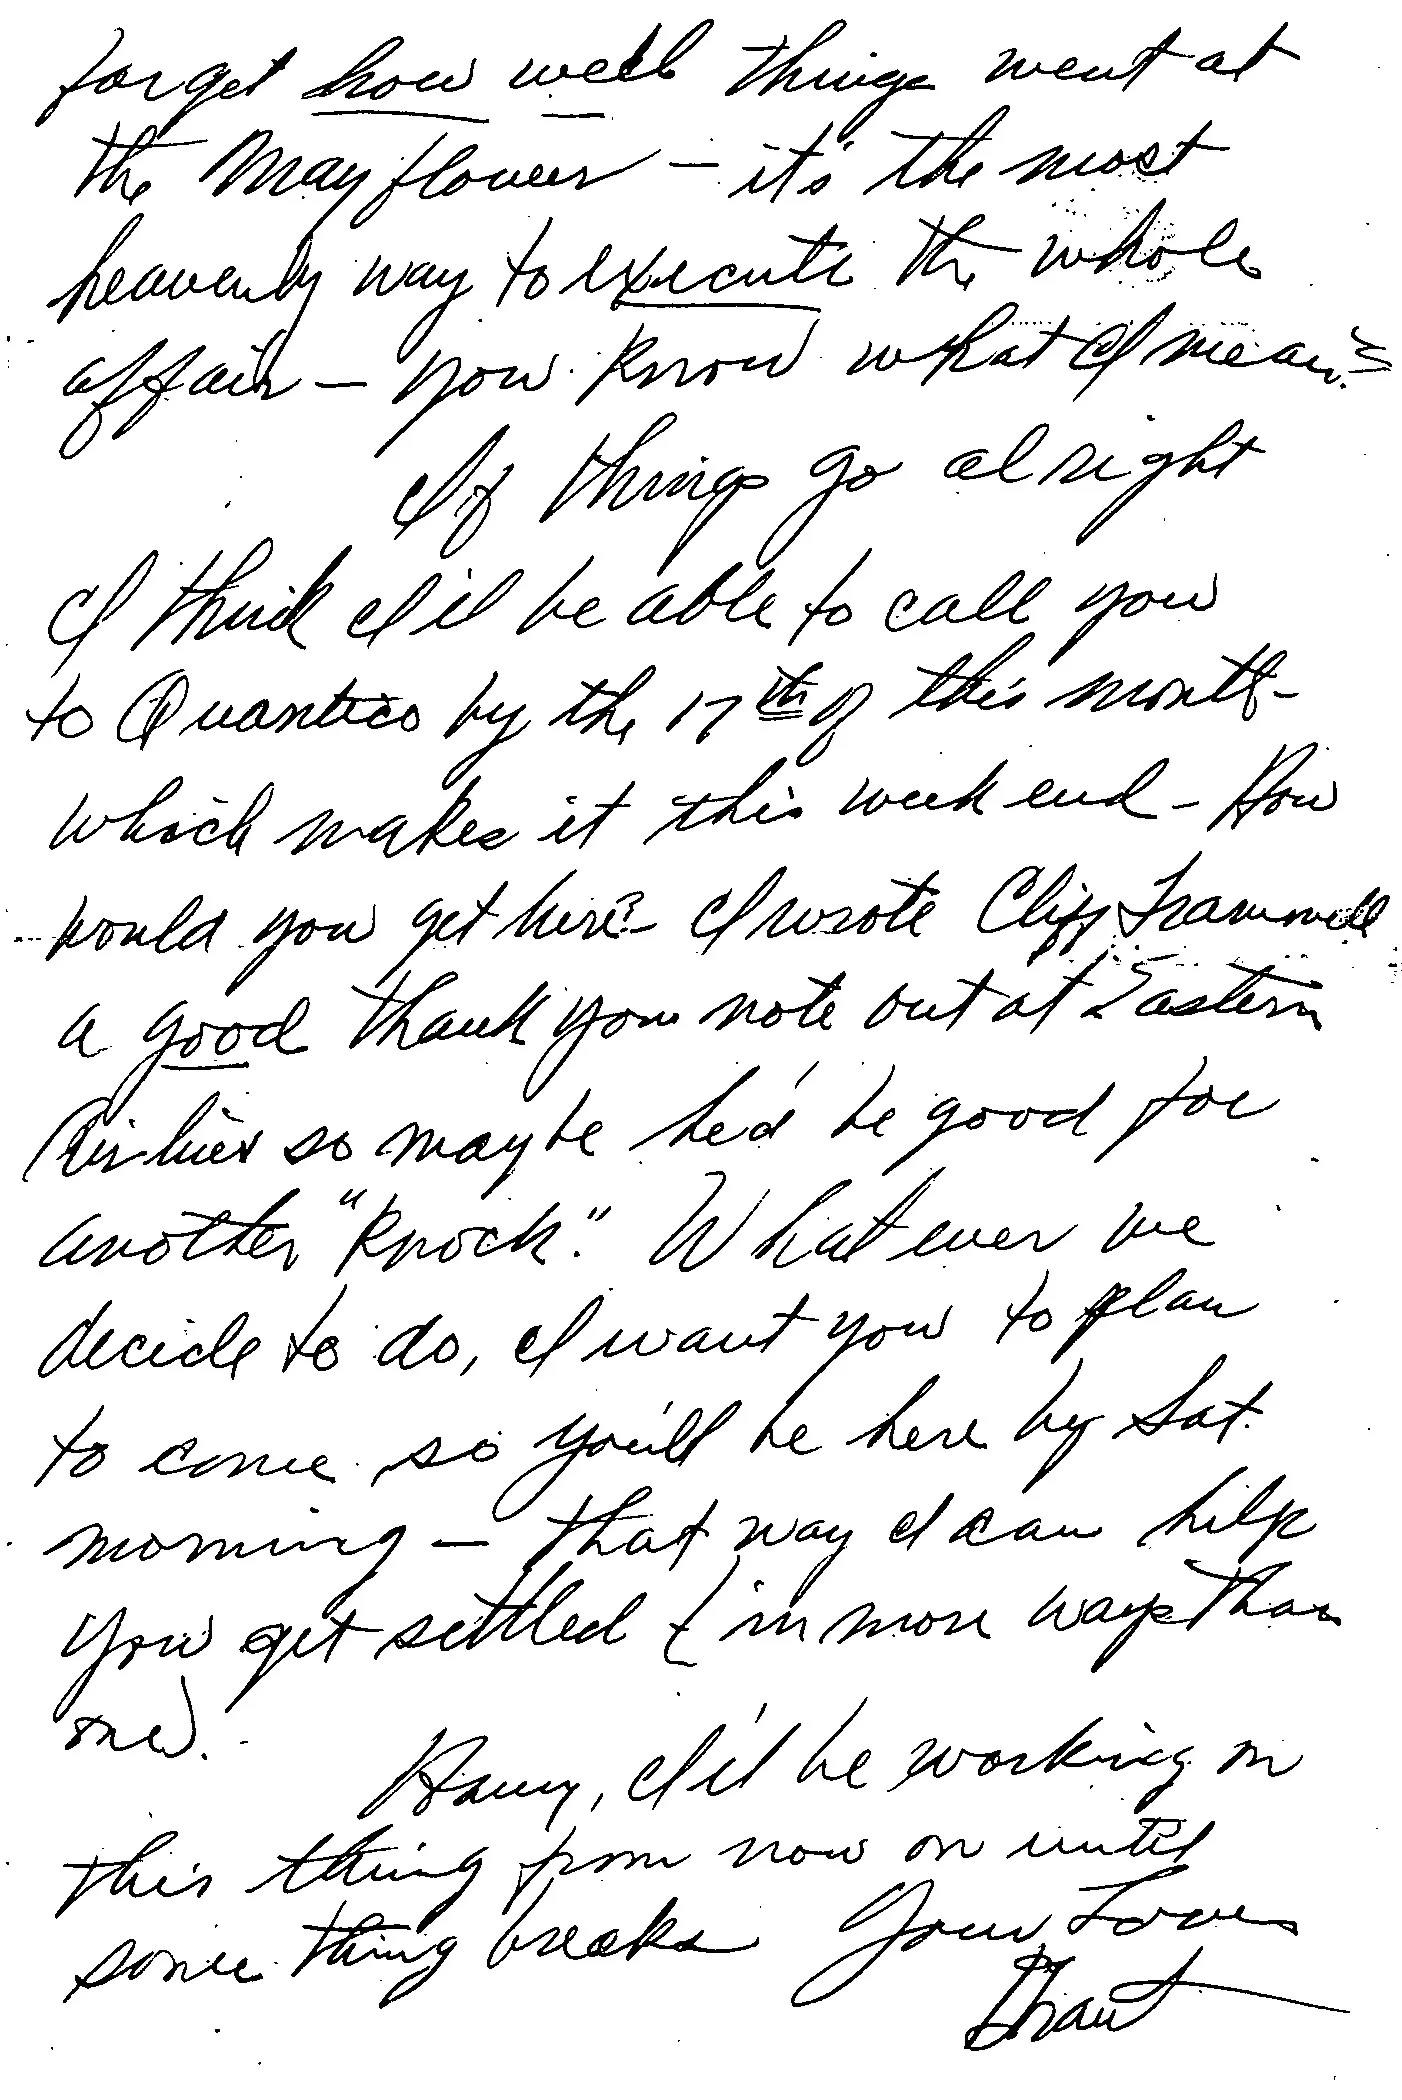 forget how well things went at
the Mayflower — it's the most
heavenly way to execute the whole
affair — you know what I mean?
If things go alright
I think I'll be able to call you
to Quantico by the 17th of this month —
which makes it this week end — How
would you get here? — I wrote Cliff Trammell
a good thank you note out at Eastern
Airlines so maybe he'd be good for
another "Knock". What ever we
decide to do, I want you to plan
to come so you'll be here by Sat.
morning — that way I can help
you get settled (in more ways than
one).
Honey, I'll be working on
this thing from now on until
some thing breaks Your Lover
Grant